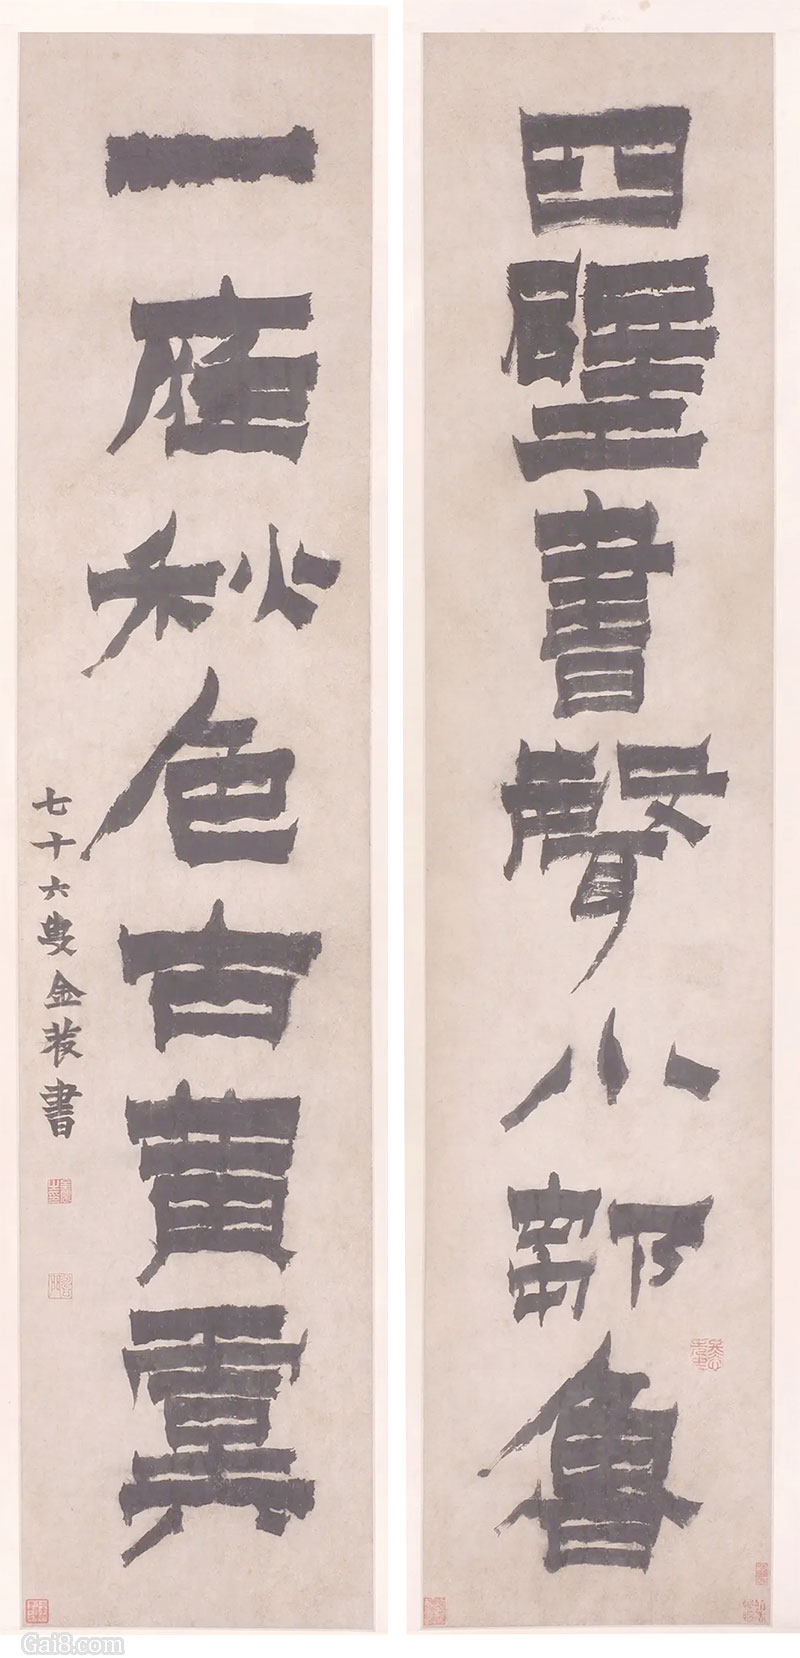 四壁書聲小鄒魯
一庭秋色古黃虞
七十六叟金農書
Gai8.com